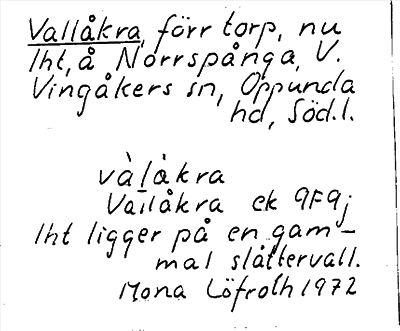 Vallåkra, förr torp, nu
lht, å Norrspånga, V.
Vingåkers sn, Oppunda
hd, Söd.l.
vàlåkra
Vallåkra ek 9F9j
lht ligger på en gam-
mal slåttervall.
Mona Löfroth 1972